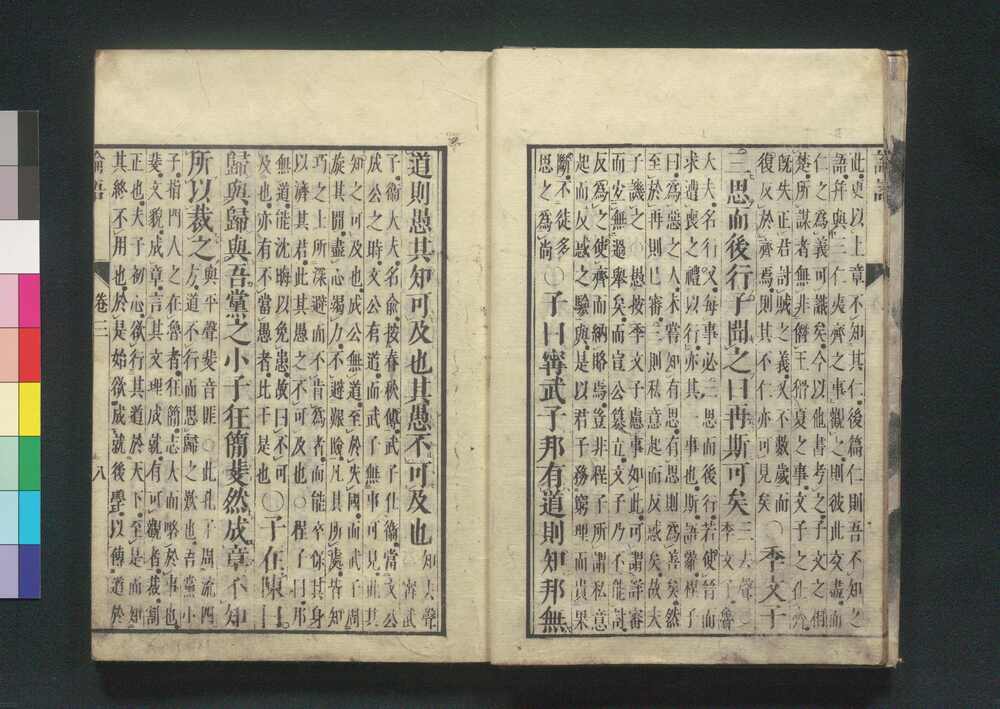 論語
此更以上章不知其仁後篇仁則吾不知之
語幷與三仁夷齊之事觀之則彼此交盡而
仁之爲義可識矣今以他書考之子文之相
楚所謀者無非僭王猾夏之事文子之仕齊
旣失正君討賊之義又不數歲而
復反於齊焉則其不仁亦可見矣
○季文子
三思而後行子聞之曰再斯可矣
三去聲○
季文子魯
大夫名行父每事必三思而後行若使晉而
求遭喪之禮以行亦其一事也斯語辭程子
曰爲惡之人未嘗知有思有思則爲善矣然
至於再則已審三則私意起而反惑矣故夫
子譏之○愚按季文子慮事如此可謂詳審
而宜無過舉矣而宣公篡立文子乃不能討
反爲之使齊而納賂焉豈非程子所謂私意
起而反惑之驗與是以君子務窮理而貴果
斷不徒多
思之爲尙
○子曰甯武子邦有道則知邦無
道則愚其知可及也其愚不可及也
知去聲
○甯武
子衞大夫名俞按春秋傳武子仕衞當文公
成公之時文公有道而武子無事可見此其
知之可及也成公無道至於失國而武子周
旋其間盡心竭力不避艱險凡其所處皆知
巧之士所深避而不肯爲者而能卒保其身
以濟其君此其愚之不可及也○程子曰邦
無道能沈晦以免患故曰不可
及也亦有不當愚者比干是也
○子在陳曰
歸與歸與吾黨之小子狂簡斐然成章不知
所以裁之
與平聲斐音匪○此孔子周流四
方道不行而思歸之歎也吾黨小
子指門人之在魯者狂簡志大而略於事也
斐文貌成章言其文理成就有可觀者裁割
正也夫子初心欲行其道於天下至是而知
其終不用也於是始欲成就後學以傳道於
論語 卷三 八